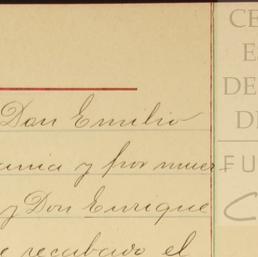 Don Emilio
ania y por muer-
y Don Enrique
e recabado el
CE
E
DE
D
FU
C